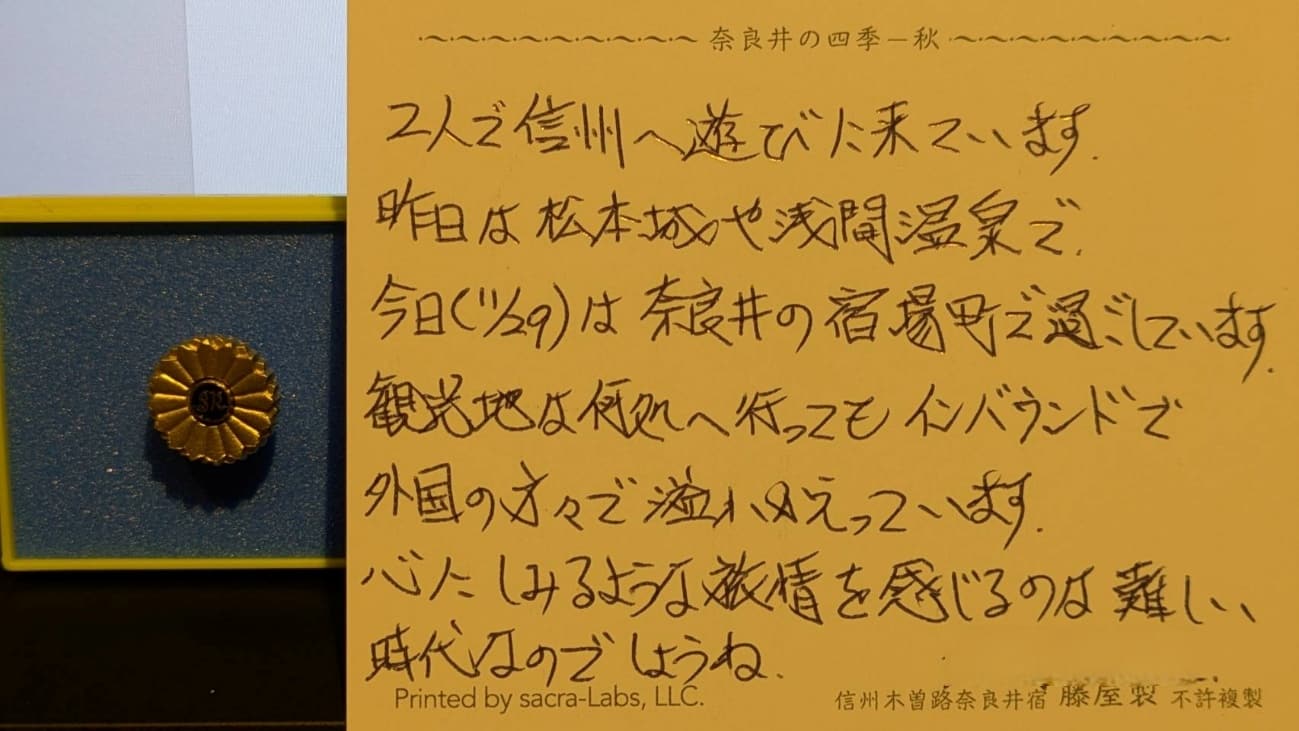 奈良井の四季—秋
2人で信州へ遊びに来ています.
昨日は松本城や浅間温泉で.
今日(11/29)は奈良井の宿場町で過ごしています.
観光地は何処へ行ってもインバウンドで
外国の方々で溢れかえっています.
心にしみるような旅情を感じるのは難しい、
時代なのでしょうね.
Printed by sacra-Labs, LLC.
信州木曽路奈良井宿 藤屋製 不許複製